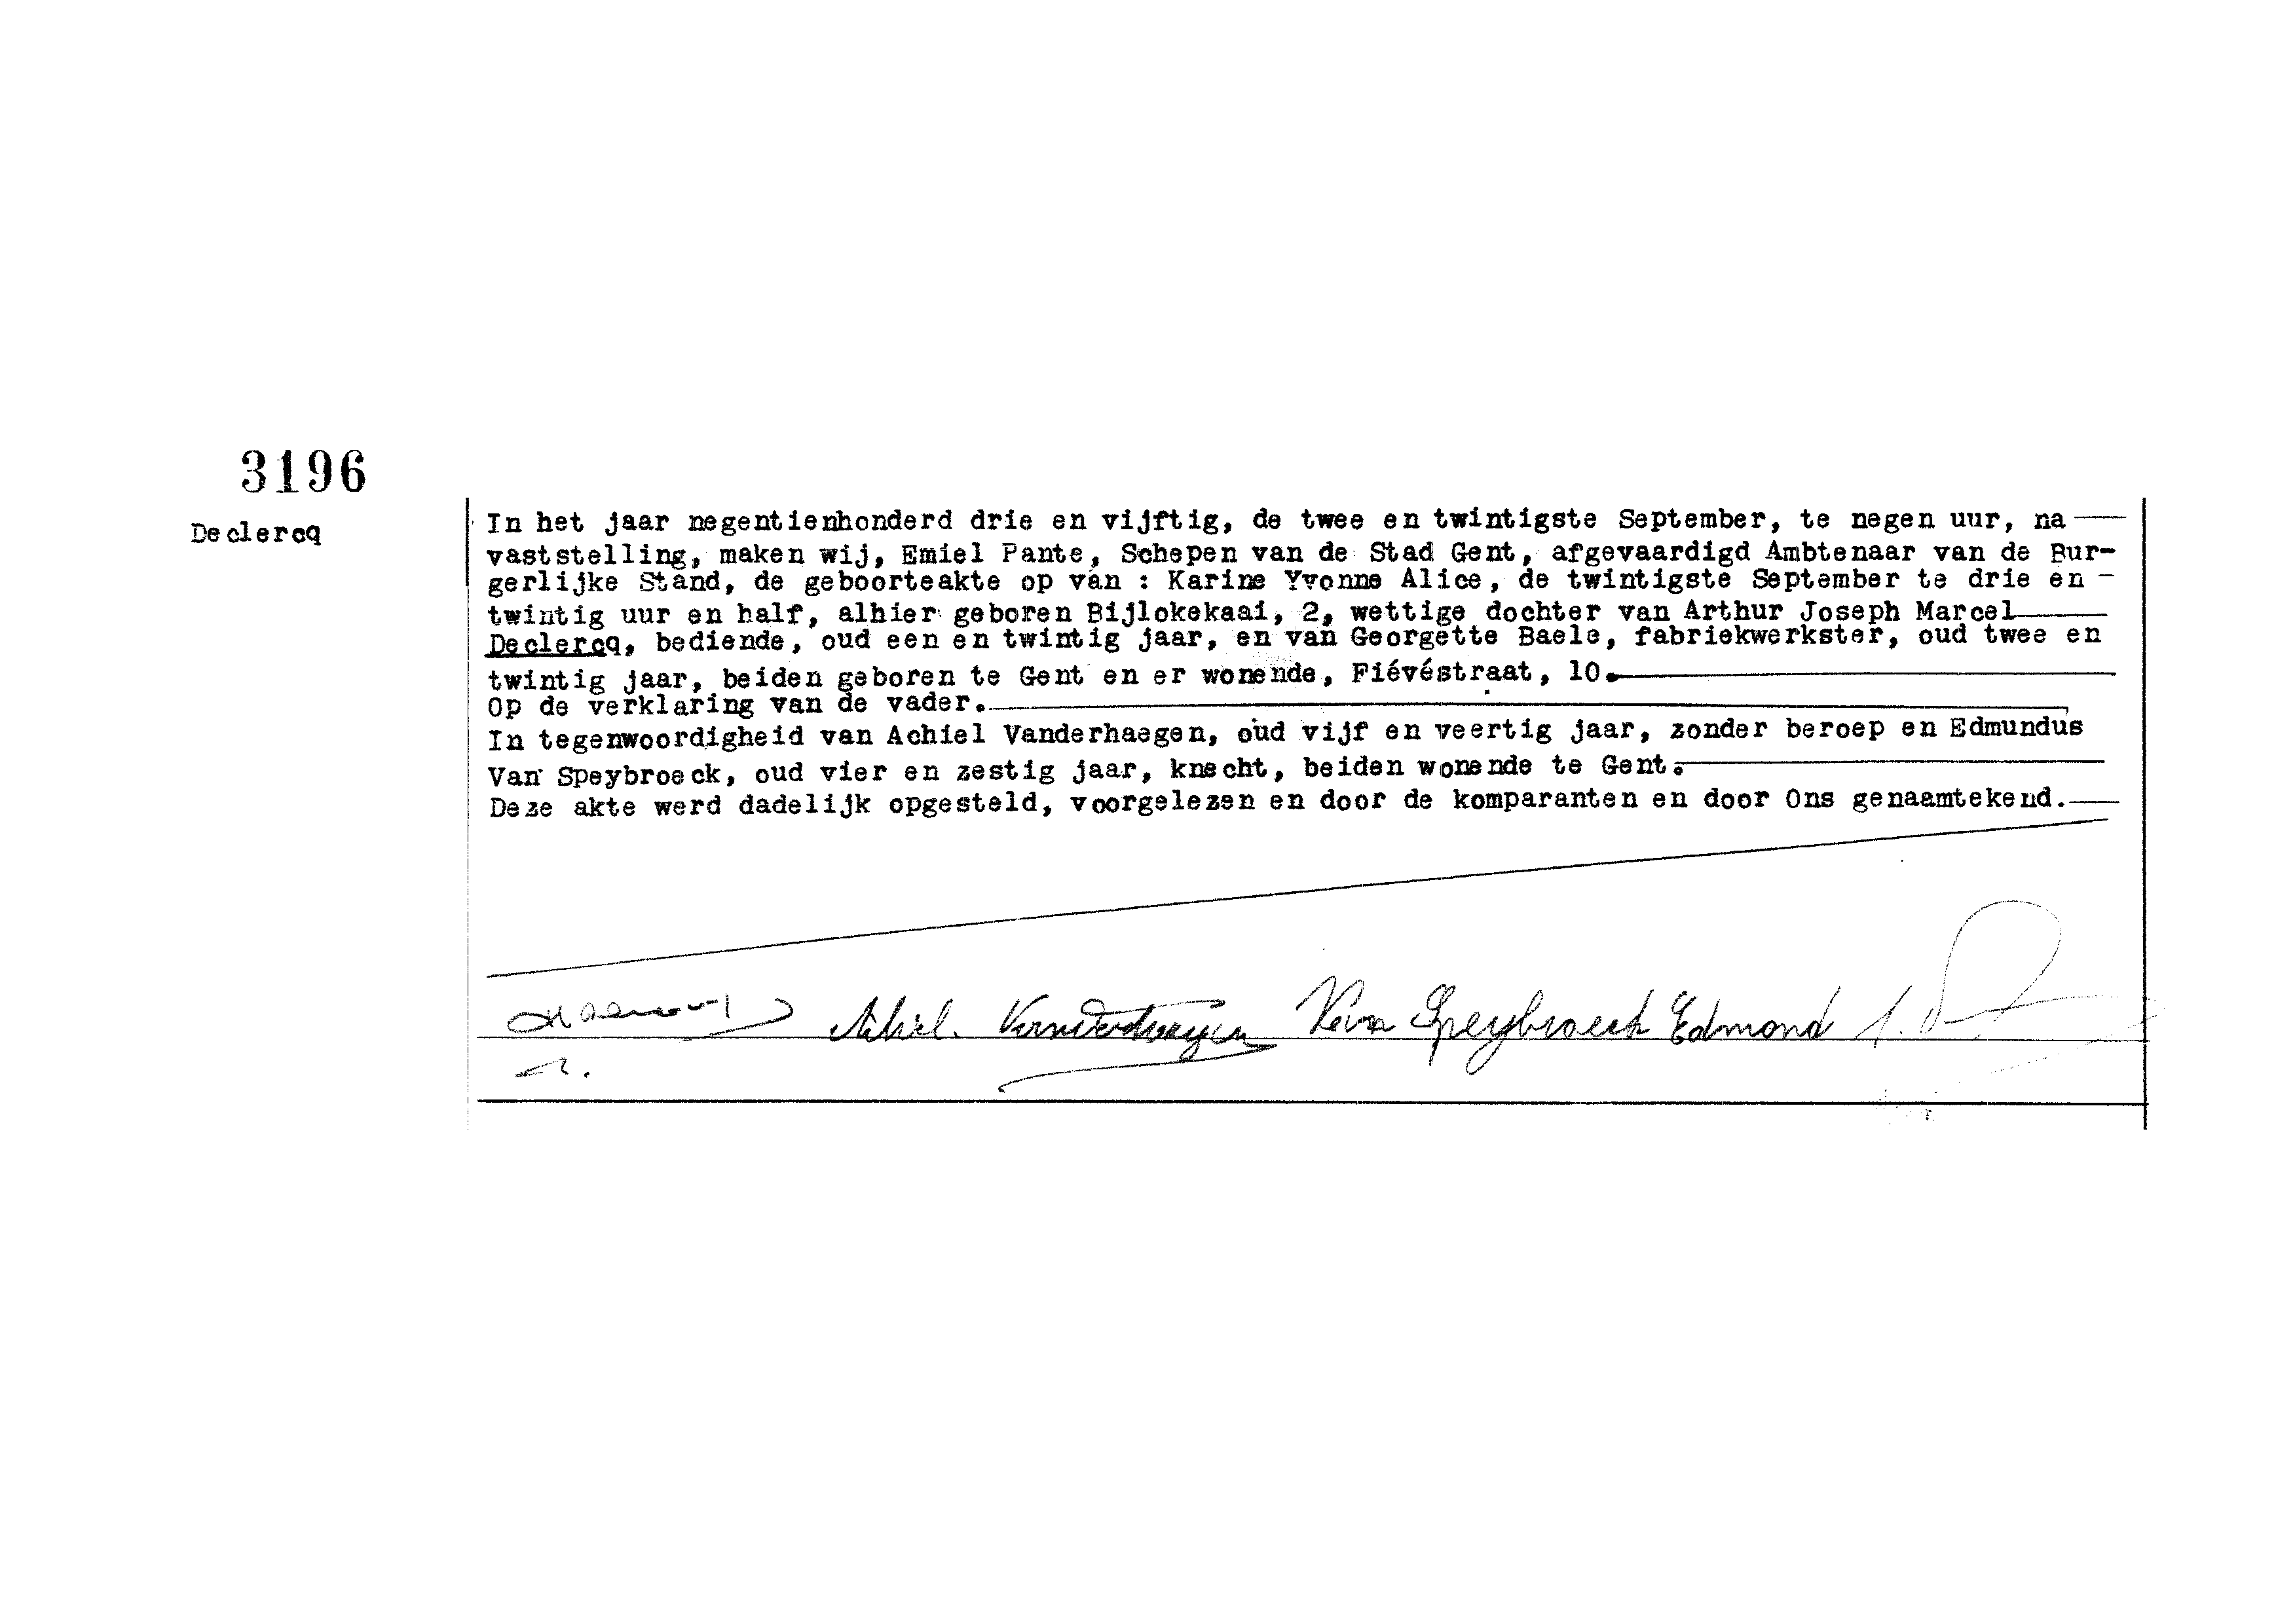 3196
Declercq
In het jaar negentienhonderd drie en vijftig, de twee en twintigste September, te negen uur, na
vaststelling, maken wij, Emiel Pante, Schepen van de Stad Gent, afgevaardigd Ambtenaar van de Bur-
gerlijke Stand, de geboorteakte op van : Karine Yvonne Alice, de twintigste September te drie en -
twintig uur en half, alhier geboren Bijlokekaai, 2, wettige dochter van Arthur Joseph Marcel
Declercq, bediende, oud een en twintig jaar, en van Georgette Baele, fabriekwerkster, oud twee en
twintig jaar, beiden geboren te Gent en er wonende, Fiévéstraat, 10.
Op de verklaring van de vader.
In tegenwoordigheid van Achiel Vanderhaegen, oud vijf en veertig jaar, zonder beroep en Edmundus
Van Speybroeck, oud vier en zestig jaar, knecht, beiden wonende te Gent.
Deze akte werd dadelijk opgesteld, voorgelezen en door de komparanten en door Ons genaamtekend.
Achiel. Vanderhaegen Van Speybroeck Edmond